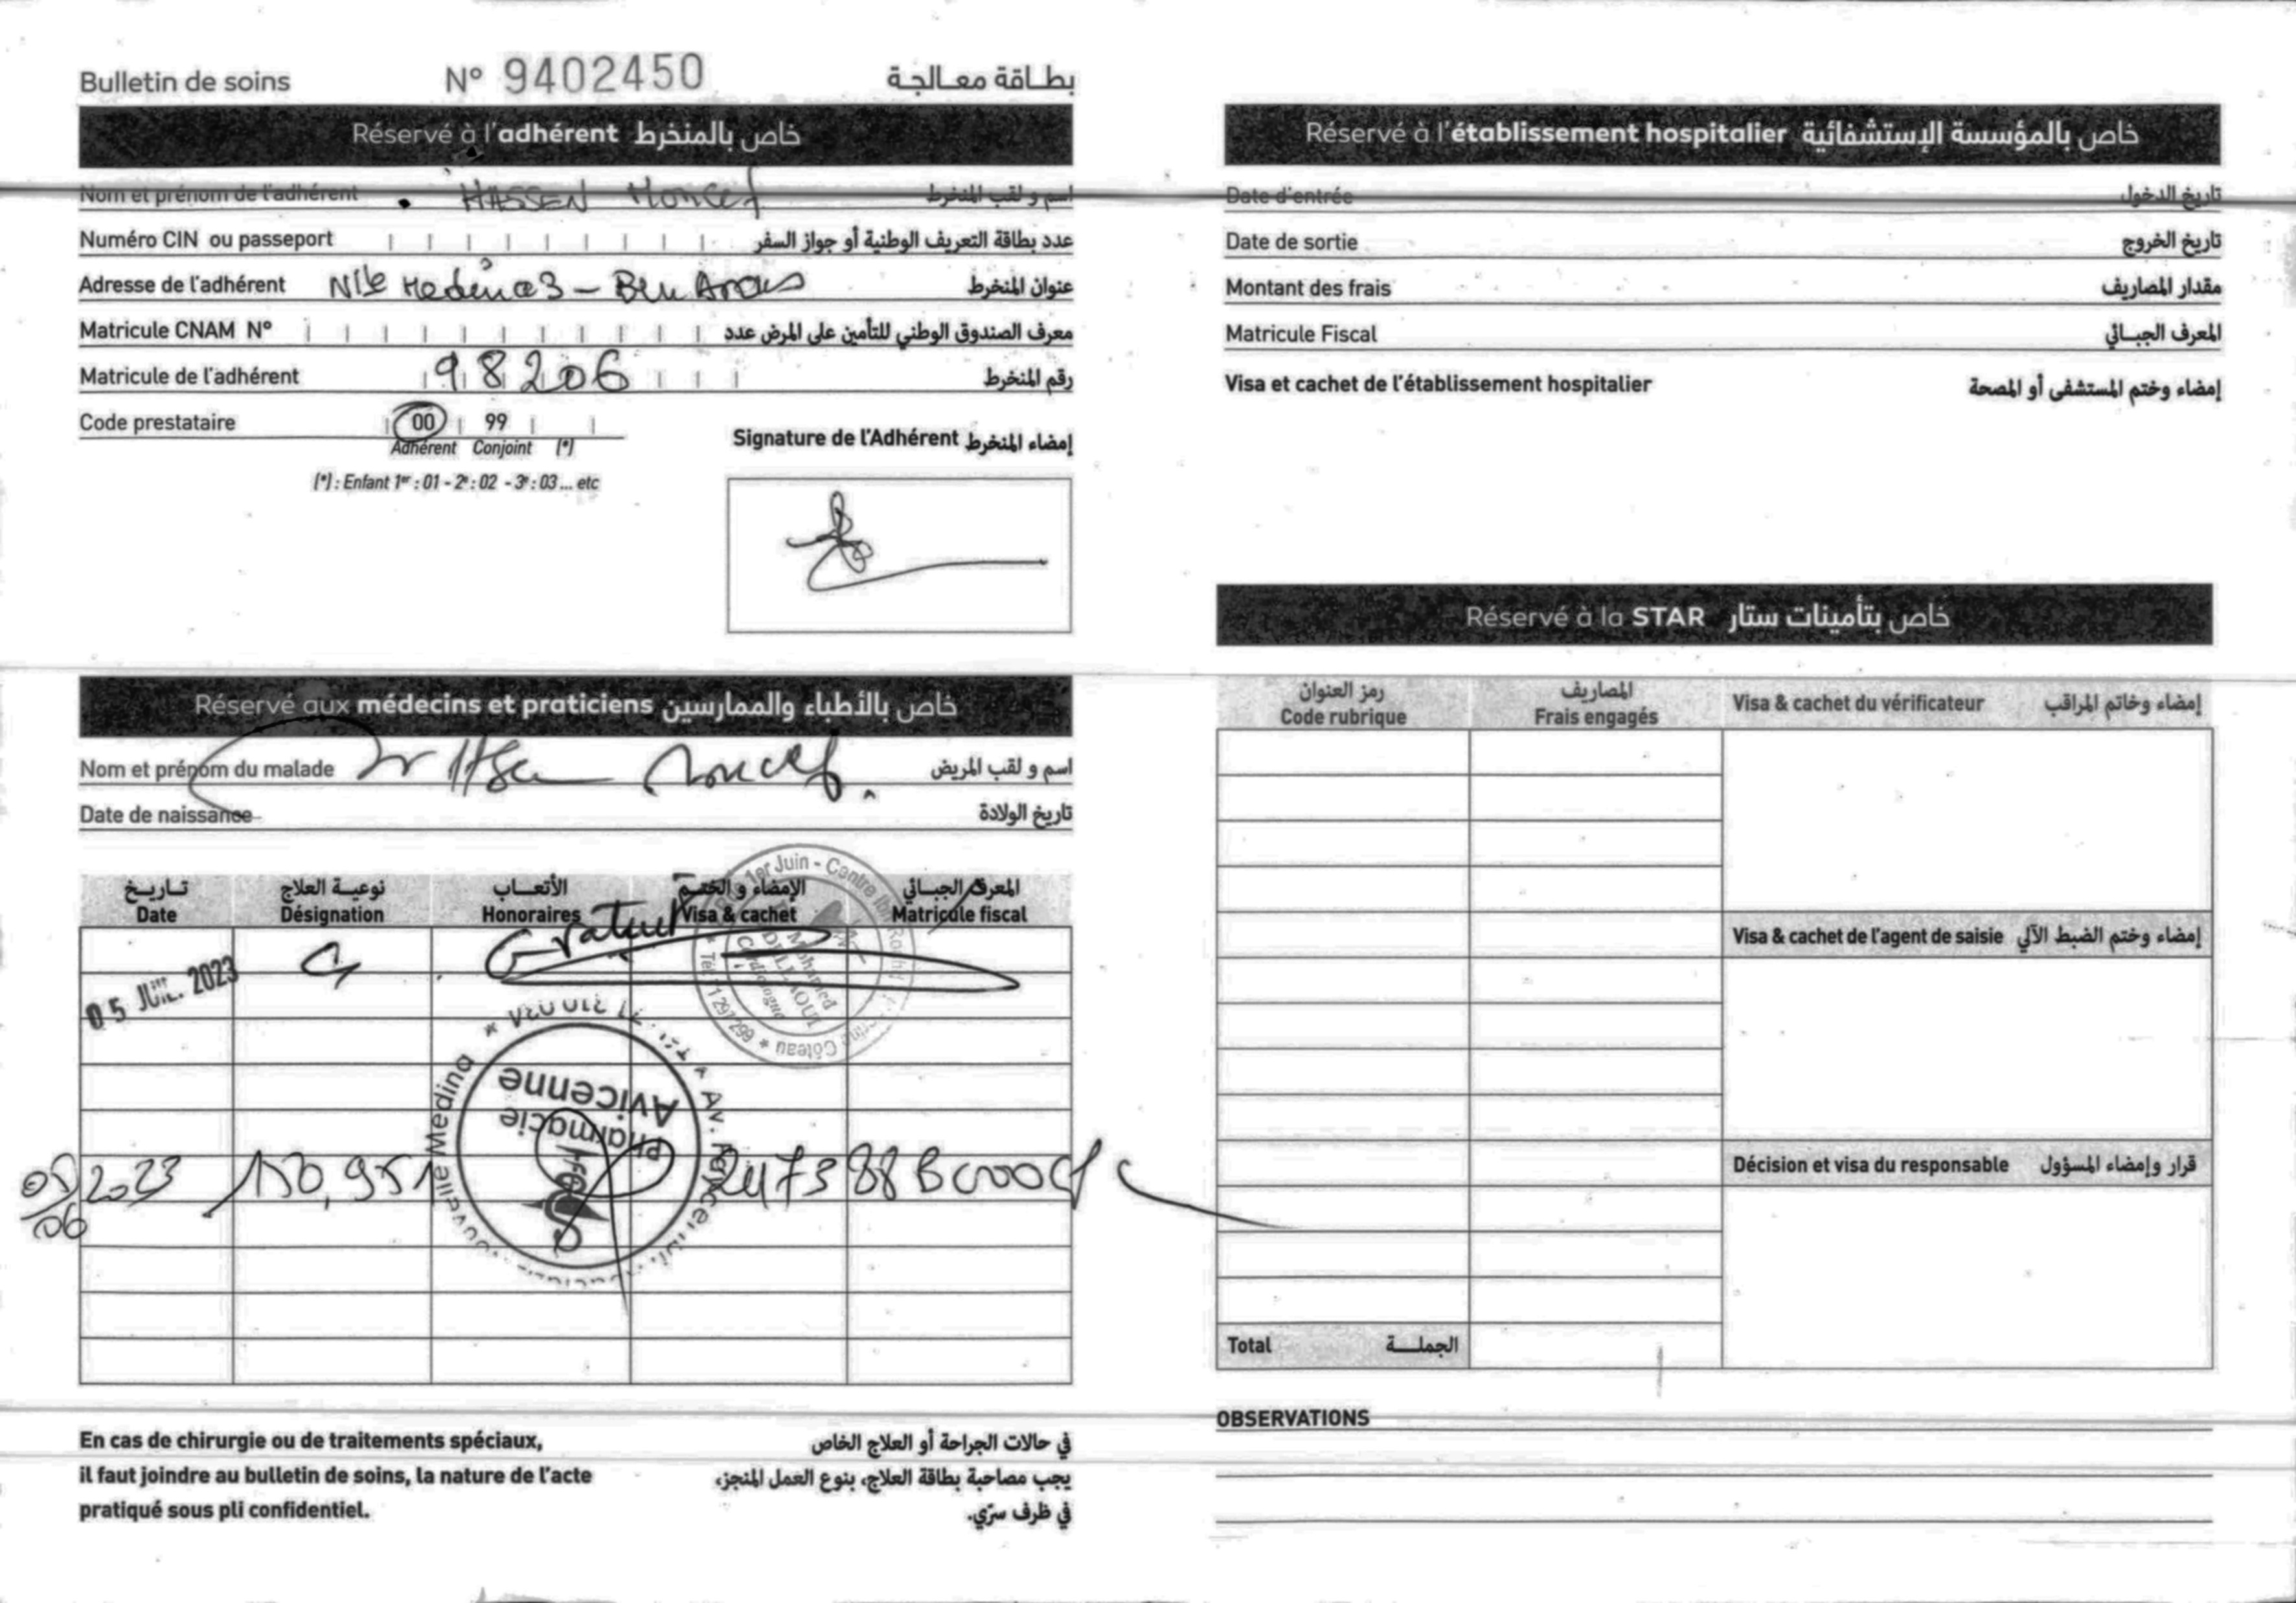 Bulletin de soins N° 9402450 بطاقة معالجة
Réservé à l'adhérent خاص بالمنخرط
Nom et prénom de l'adhérent . HASSEN Moncef اسم و لقب المنخرط
Numéro CIN ou passeport عدد بطاقة التعريف الوطنية أو جواز السفر
Adresse de l'adhérent Nlle Medina 3 - Ben Arous عنوان المنخرط
Matricule CNAM N° معرف الصندوق الوطني للتأمين على المرض عدد
Matricule de l'adhérent 98206 رقم المنخرط
Code prestataire 00 99
Adhérent Conjoint (*)
(*) : Enfant 1er : 01 - 2e : 02 - 3e : 03 ... etc
Signature de l'Adhérent إمضاء المنخرط
Réservé aux médecins et praticiens خاص بالأطباء والممارسين
Nom et prénom du malade Moncef اسم و لقب المريض
Date de naissance تاريخ الولادة
تاريخ نوعية العلاج الأتعاب الإمضاء و الختم المعرف الجبائي
Date Désignation Honoraires Visa & cachet Matricule fiscal
05 JUIL. 2023 Gratuit
1er Juin - Centre Ibn
Mohamed
Cardiologue
Pharmacie
Avicenne
Nouvelle Medina
05/06 2023 150,951
En cas de chirurgie ou de traitements spéciaux,
il faut joindre au bulletin de soins, la nature de l'acte
pratiqué sous pli confidentiel.
في حالات الجراحة أو العلاج الخاص
يجب مصاحبة بطاقة العلاج، بنوع العمل المنجز،
في ظرف سرّي.
Réservé à l'établissement hospitalier خاص بالمؤسسة الإستشفائية
Date d'entrée تاريخ الدخول
Date de sortie تاريخ الخروج
Montant des frais مقدار المصاريف
Matricule Fiscal المعرف الجبائي
Visa et cachet de l'établissement hospitalier إمضاء وختم المستشفى أو المصحة
Réservé à la STAR خاص بتأمينات ستار
رمز العنوان المصاريف
Code rubrique Frais engagés Visa & cachet du vérificateur إمضاء وخاتم المراقب
Visa & cachet de l'agent de saisie إمضاء وختم الضبط الآلي
Décision et visa du responsable قرار وإمضاء المسؤول
Total الجملة
OBSERVATIONS